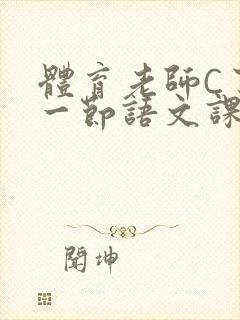 體育老師C了
一節語文課
聞坤